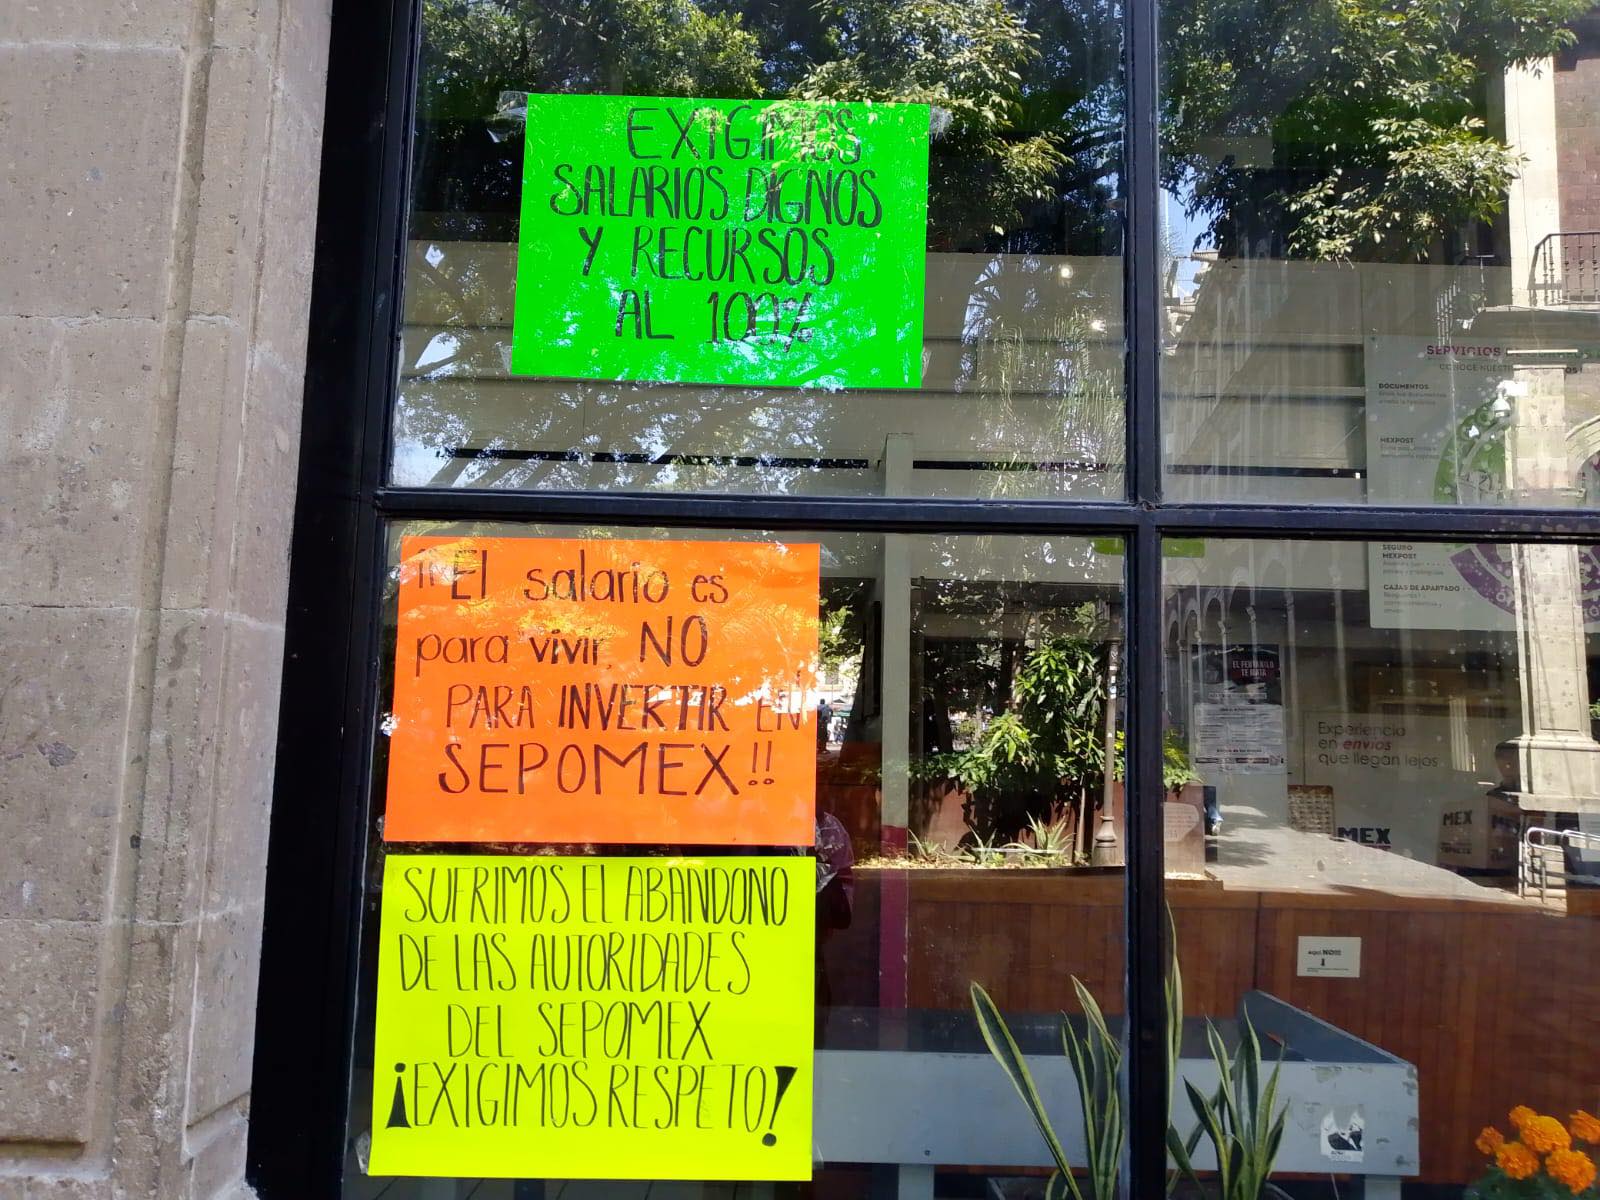 EXIGIMOS
SALARIOS DIGNOS
Y RECURSOS
AL 100%
¡¡El salario es
para vivir, NO
PARA INVERTIR EN
SEPOMEX!!
SUFRIMOS EL ABANDONO
DE LAS AUTORIDADES
DEL SEPOMEX
¡EXIGIMOS RESPETO!
SERVICIOS
DOCUMENTOS
MEXPOST
SEGURO
MEXPOST
CAJAS DE APARTADO
EL FENTANILO
TE MATA
Experiencia
en envíos
que llegan lejos
MEX
MEX
AQUÍ NO!!!